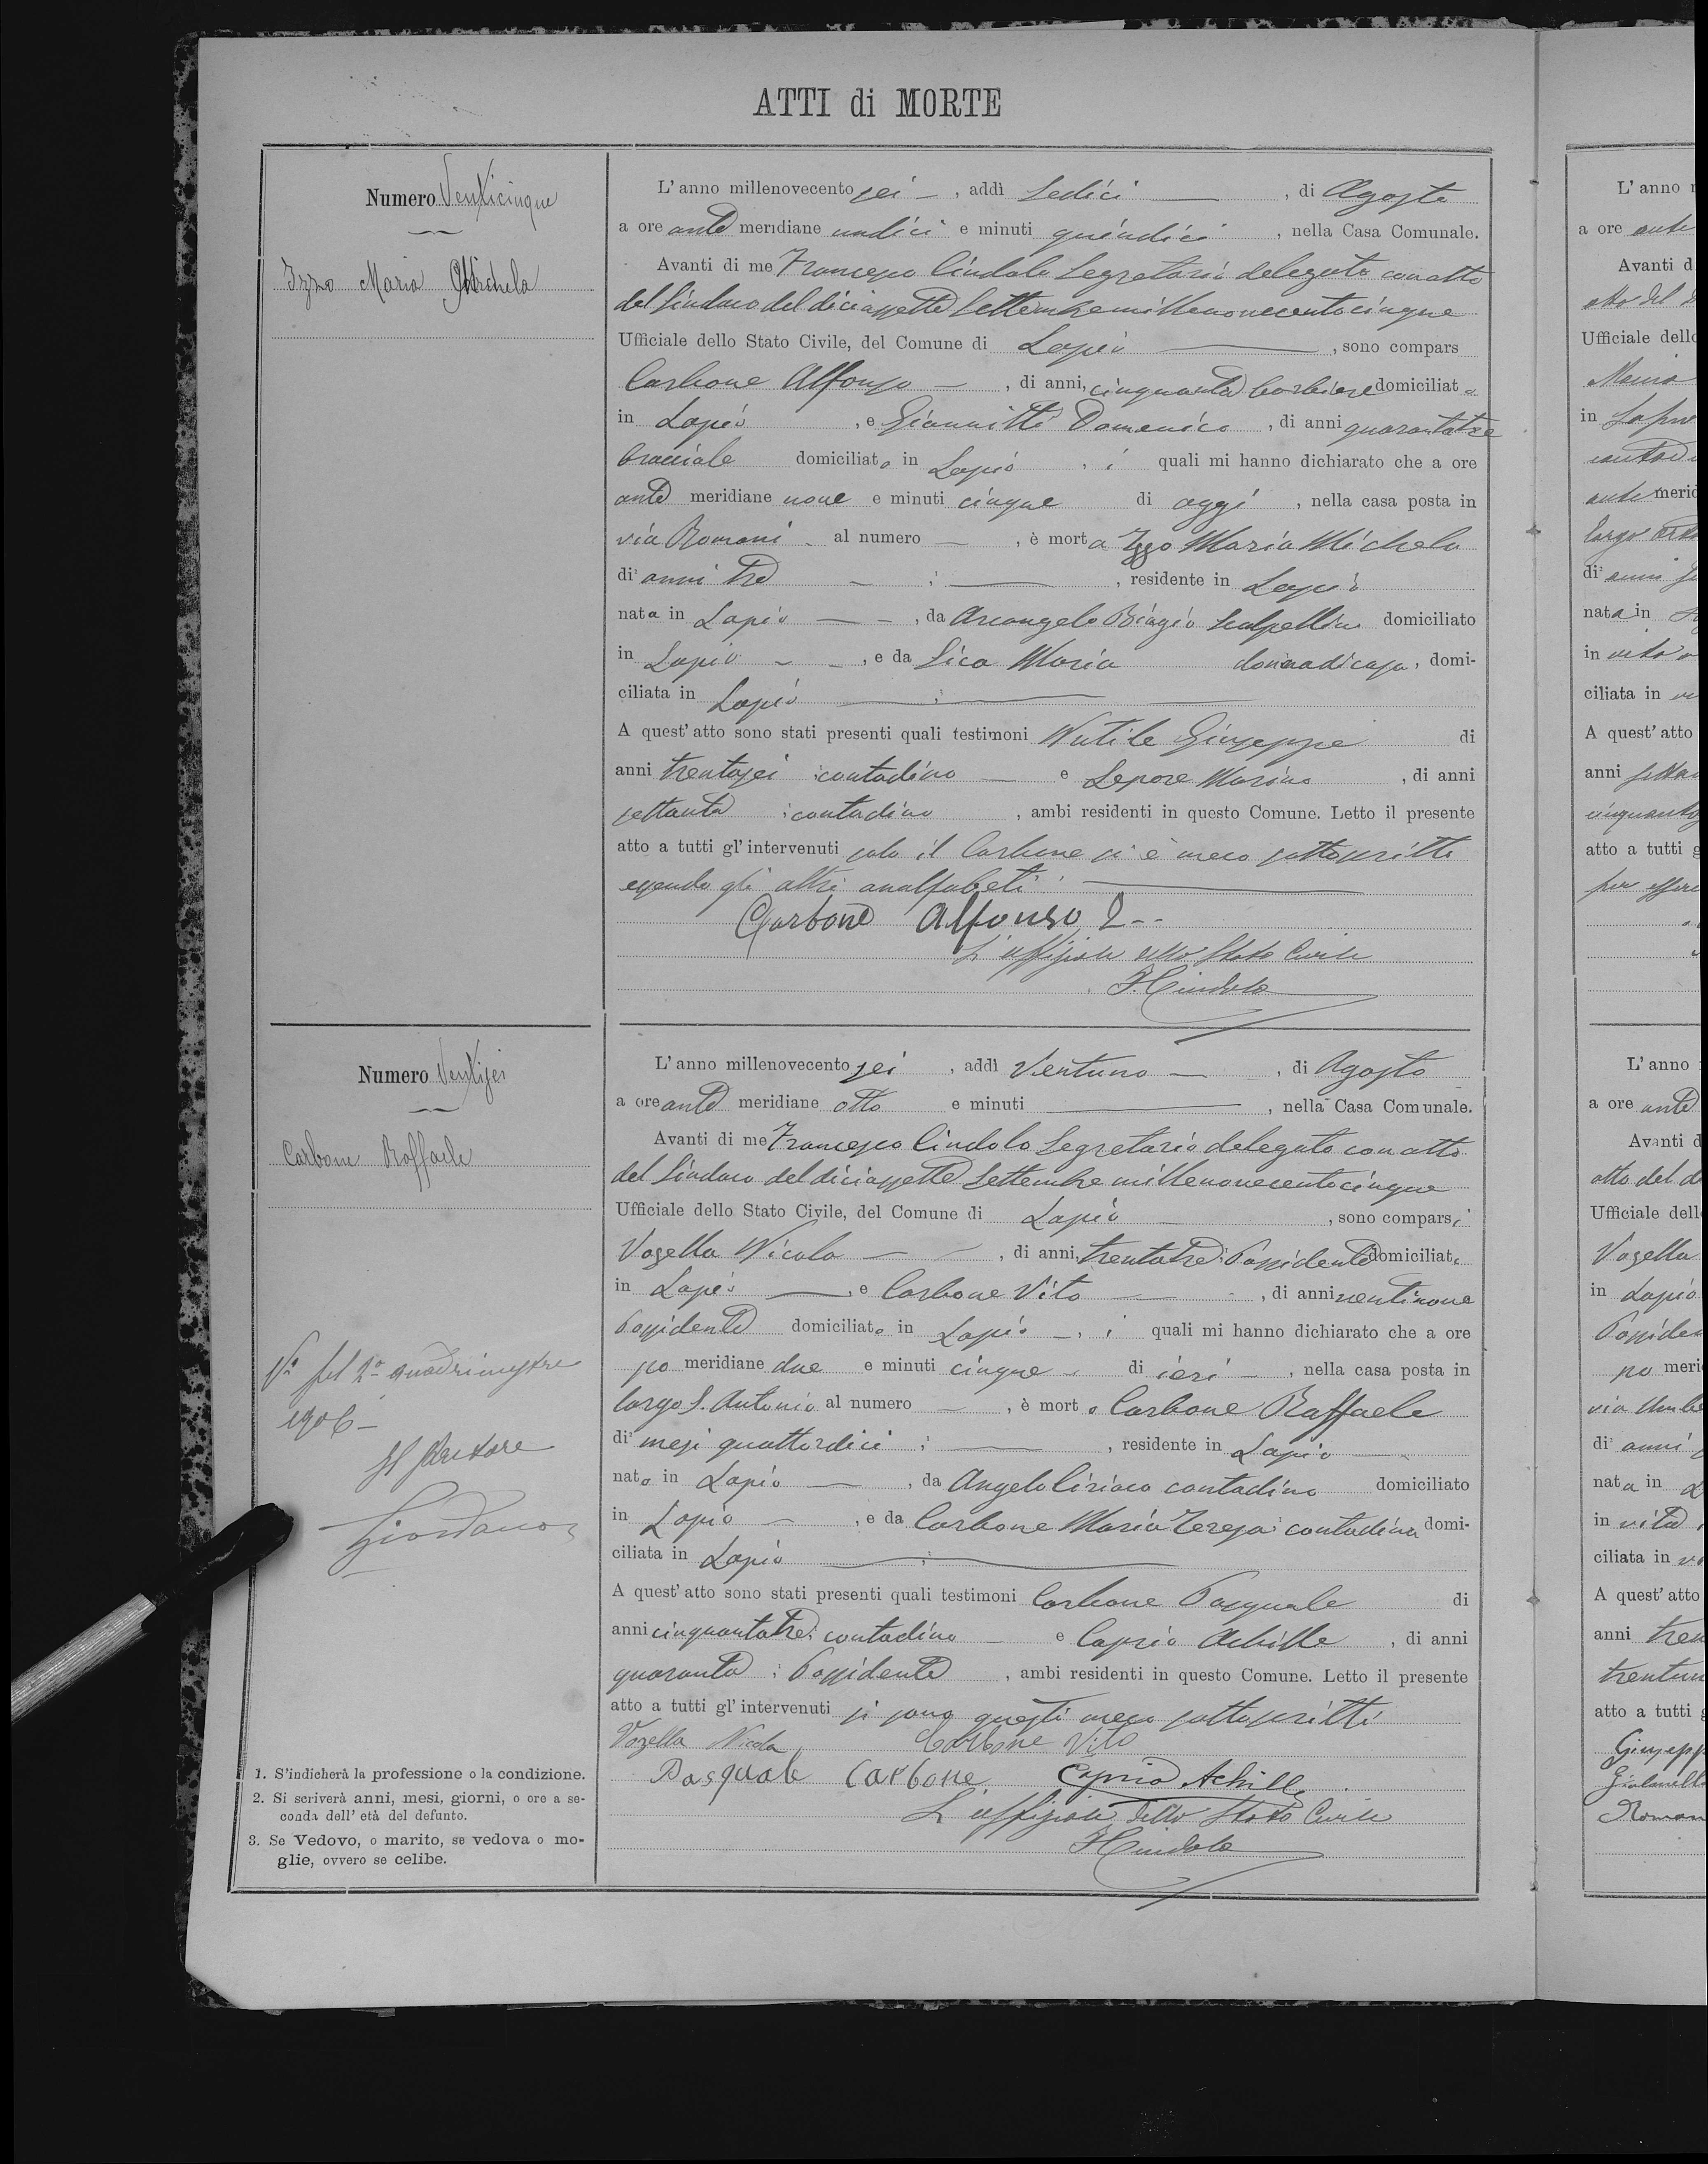 ATTI di MORTE
Numero Venticinque
Izzo Maria Michela
L'anno millenovecento sei, addì Sedici, di Agosto
a ore ante meridiane undici e minuti quindici, nella Casa Comunale.
Avanti di me Francesco Cindolo Segretario delegato con atto
del Sindaco del diciassette Settembre millenovecentocinque
Ufficiale dello Stato Civile, del Comune di Lapio, sono compars
Carbone Alfonso, di anni, cinquanta barbiere domiciliato
in Lapio, e Giannitti Domenico, di anni quarantatre
bracciale domiciliato in Lapio, i quali mi hanno dichiarato che a ore
ante meridiane nove e minuti cinque di oggi, nella casa posta in
via Romani al numero, è morta Izzo Maria Michela
di anni tre, residente in Lapio
nata in Lapio, da Arcangelo Biagio Scalpellino domiciliato
in Lapio, e da Sica Maria donna di casa, domi-
ciliata in Lapio
A quest'atto sono stati presenti quali testimoni Nutile Giuseppe di
anni trentasei contadino e Lepore Marino, di anni
settanta contadino, ambi residenti in questo Comune. Letto il presente
atto a tutti gl'intervenuti solo il Carbone si è meco sottoscritto
essendo gli altri analfabeti
Carbone Alfonso
L'uffiziale dello Stato Civile
F. Cindolo
Numero Ventisei
Carbone Raffaele
L'anno millenovecento sei, addì Ventuno, di Agosto
a ore ante meridiane otto e minuti, nella Casa Comunale.
Avanti di me Francesco Cindolo Segretario delegato con atto
del Sindaco del diciassette Settembre millenovecentocinque
Ufficiale dello Stato Civile, del Comune di Lapio, sono comparsi
Vozella Nicola, di anni, trentatre Possidente domiciliato
in Lapio, e Carbone Vito, di anni ventinove
Possidente domiciliato in Lapio, i quali mi hanno dichiarato che a ore
po meridiane due e minuti cinque di ieri, nella casa posta in
largo S. Antonio al numero, è morto Carbone Raffaele
di mesi quattordici, residente in Lapio
nato in Lapio, da Angelo Ciriaco contadino domiciliato
in Lapio, e da Carbone Maria Teresa contadina domi-
ciliata in Lapio
A quest'atto sono stati presenti quali testimoni Carbone Pasquale di
anni cinquantatre contadino e Caprio Achille, di anni
quaranta Possidente, ambi residenti in questo Comune. Letto il presente
atto a tutti gl'intervenuti si sono questi meco sottoscritti
Vozella Nicola Carbone Vito
Pasquale Carbone Caprio Achille
L'uffiziale dello Stato Civile
F. Cindolo
Vº pel 2º quadrimestre
1906
Il Pretore
Giordano
1. S'indicherà la professione o la condizione.
2. Si scriverà anni, mesi, giorni, o ore a se-
conda dell'età del defunto.
3. Se Vedovo, o marito, se vedova o mo-
glie, ovvero se celibe.
L'anno
a ore ante
Avanti d
Ufficiale dello
in
ante merid
largo
di anni
nata in
in vita
ciliata in
A quest'atto
anni
atto a tutti
L'anno
a ore ante
Avanti d
atto del d
Ufficiale dell
Vozella
in Lapio
Posside
po meri
via Umbe
di anni
nata in
in vita
ciliata in
A quest'atto
anni tren
trentun
atto a tutti
Giusepp
Roman